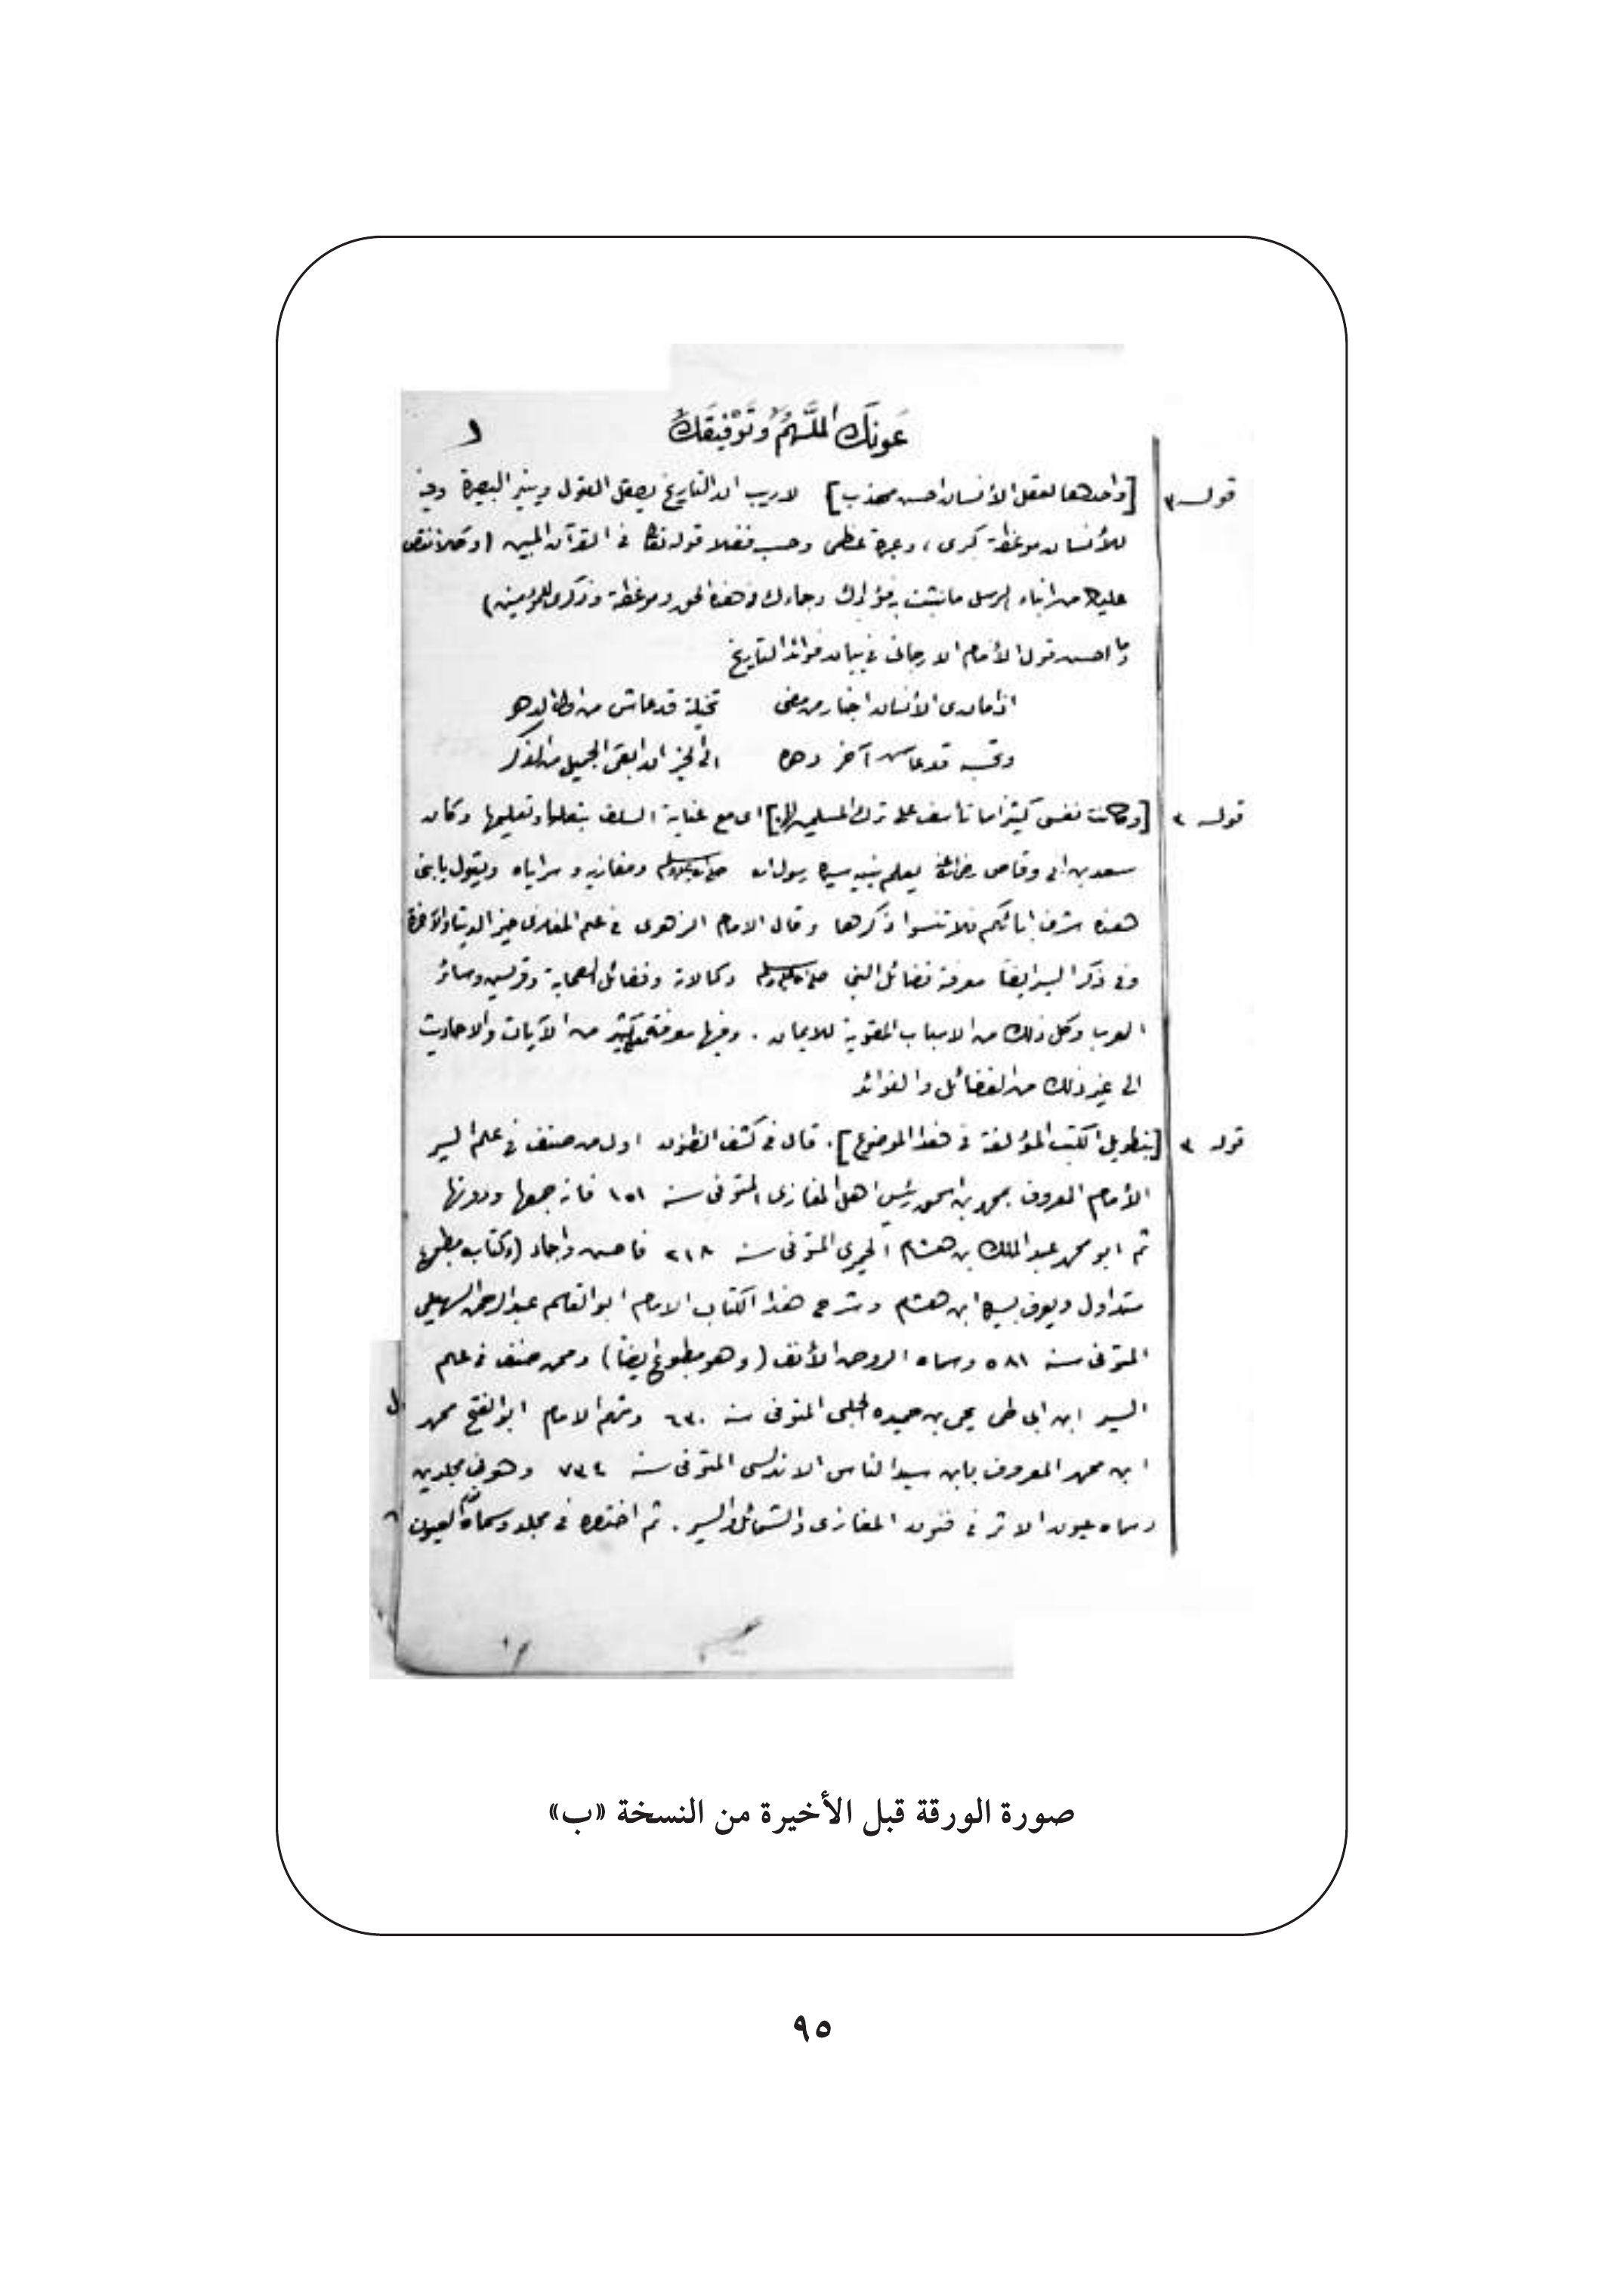 عَونَكَ اَللَّهُمَّ وَتَوْفِيقَكَ
١
قوله ٣ [واحدها لعقل الأنسان احسن مهذب] لاريب ان التاريخ يصقل العقول وينير البصيرة وفيه
للأنسان موعظة كبرى، وعبرة عظمى وحسب فضلا قوله تعالى فى القرآن المبين (وكلا نقص
عليك من انباء الرسل ما نثبت به فؤادك وجاءك فى هذه الحق وموعظة وذكرى للمؤمنين)
وما احسن قول الأمام الارجانى فى بيان فوائد التاريخ
اذا ما درى الأنسان اخبار من مضى تخيلة قد عاش من اول الدهر
وتحسبه قد عاش آخر دهره الى الحشر ان ابقى الجميل من الذكر
قوله ٣ [وكانت نفسى كثيرا ما تأسف على ترك المسلمين الخ] اى مع عناية السلف بتعلمها وتعليمها وكان
سعد بن ابى وقاص رضى الله عنه يعلم بنيه سيرة رسول الله صلى الله عليه وسلم ومغازيه وسراياه ويقول يا بنى
هذه شرف ابائكم فلا تنسوا ذكرها وقال الامام الزهرى فى علم المغازى خير الدنيا والآخرة
وفى ذكر السير ايضا معرفة فضائل النبى صلى الله عليه وسلم وكمالاته وفضائل الصحابة وقريش وسائر
العرب وكل ذلك من الاسباب المقوية للايمان . وفيها معرفة كثير من الآيات والاحاديث
الى غير ذلك من الفضائل والفوائد
قوله ٣ [بتطويل الكتب المؤلفة فى هذا الموضوع]. قال فى كشف الظنون اول من صنف فى علم السير
الأمام المعروف بمحمد بن اسحق رئيس اهل المغازى المتوفى سنة ١٥١ فانه جمعها ودونها
ثم ابو محمد عبد الملك بن هشام الحميرى المتوفى سنة ٢١٨ فاحسن واجاد (وكتابه مطبوع
متداول ويعرف بسيرة ابن هشام وشرح هذا الكتاب الامام ابو القاسم عبد الرحمن السهيلى
المتوفى سنة ٥٨١ وسماه الروض الأنف (وهو مطبوع ايضاً) وممن صنف فى علم
السير ابن ابى طى يحيى بن حميده الحلبى المتوفى سنة ٦٣٠ ومنهم الامام ابو الفتح محمد
ابن محمد المعروف بابن سيد الناس الاندلسى المتوفى سنة ٧٣٤ وهو فى مجلدين
وسماه عيون الاثر فى فنون المغازى والشمائل والسير . ثم اختصره فى مجلد وسماه العيون
صورة الورقة قبل الأخيرة من النسخة «ب»
٩٥